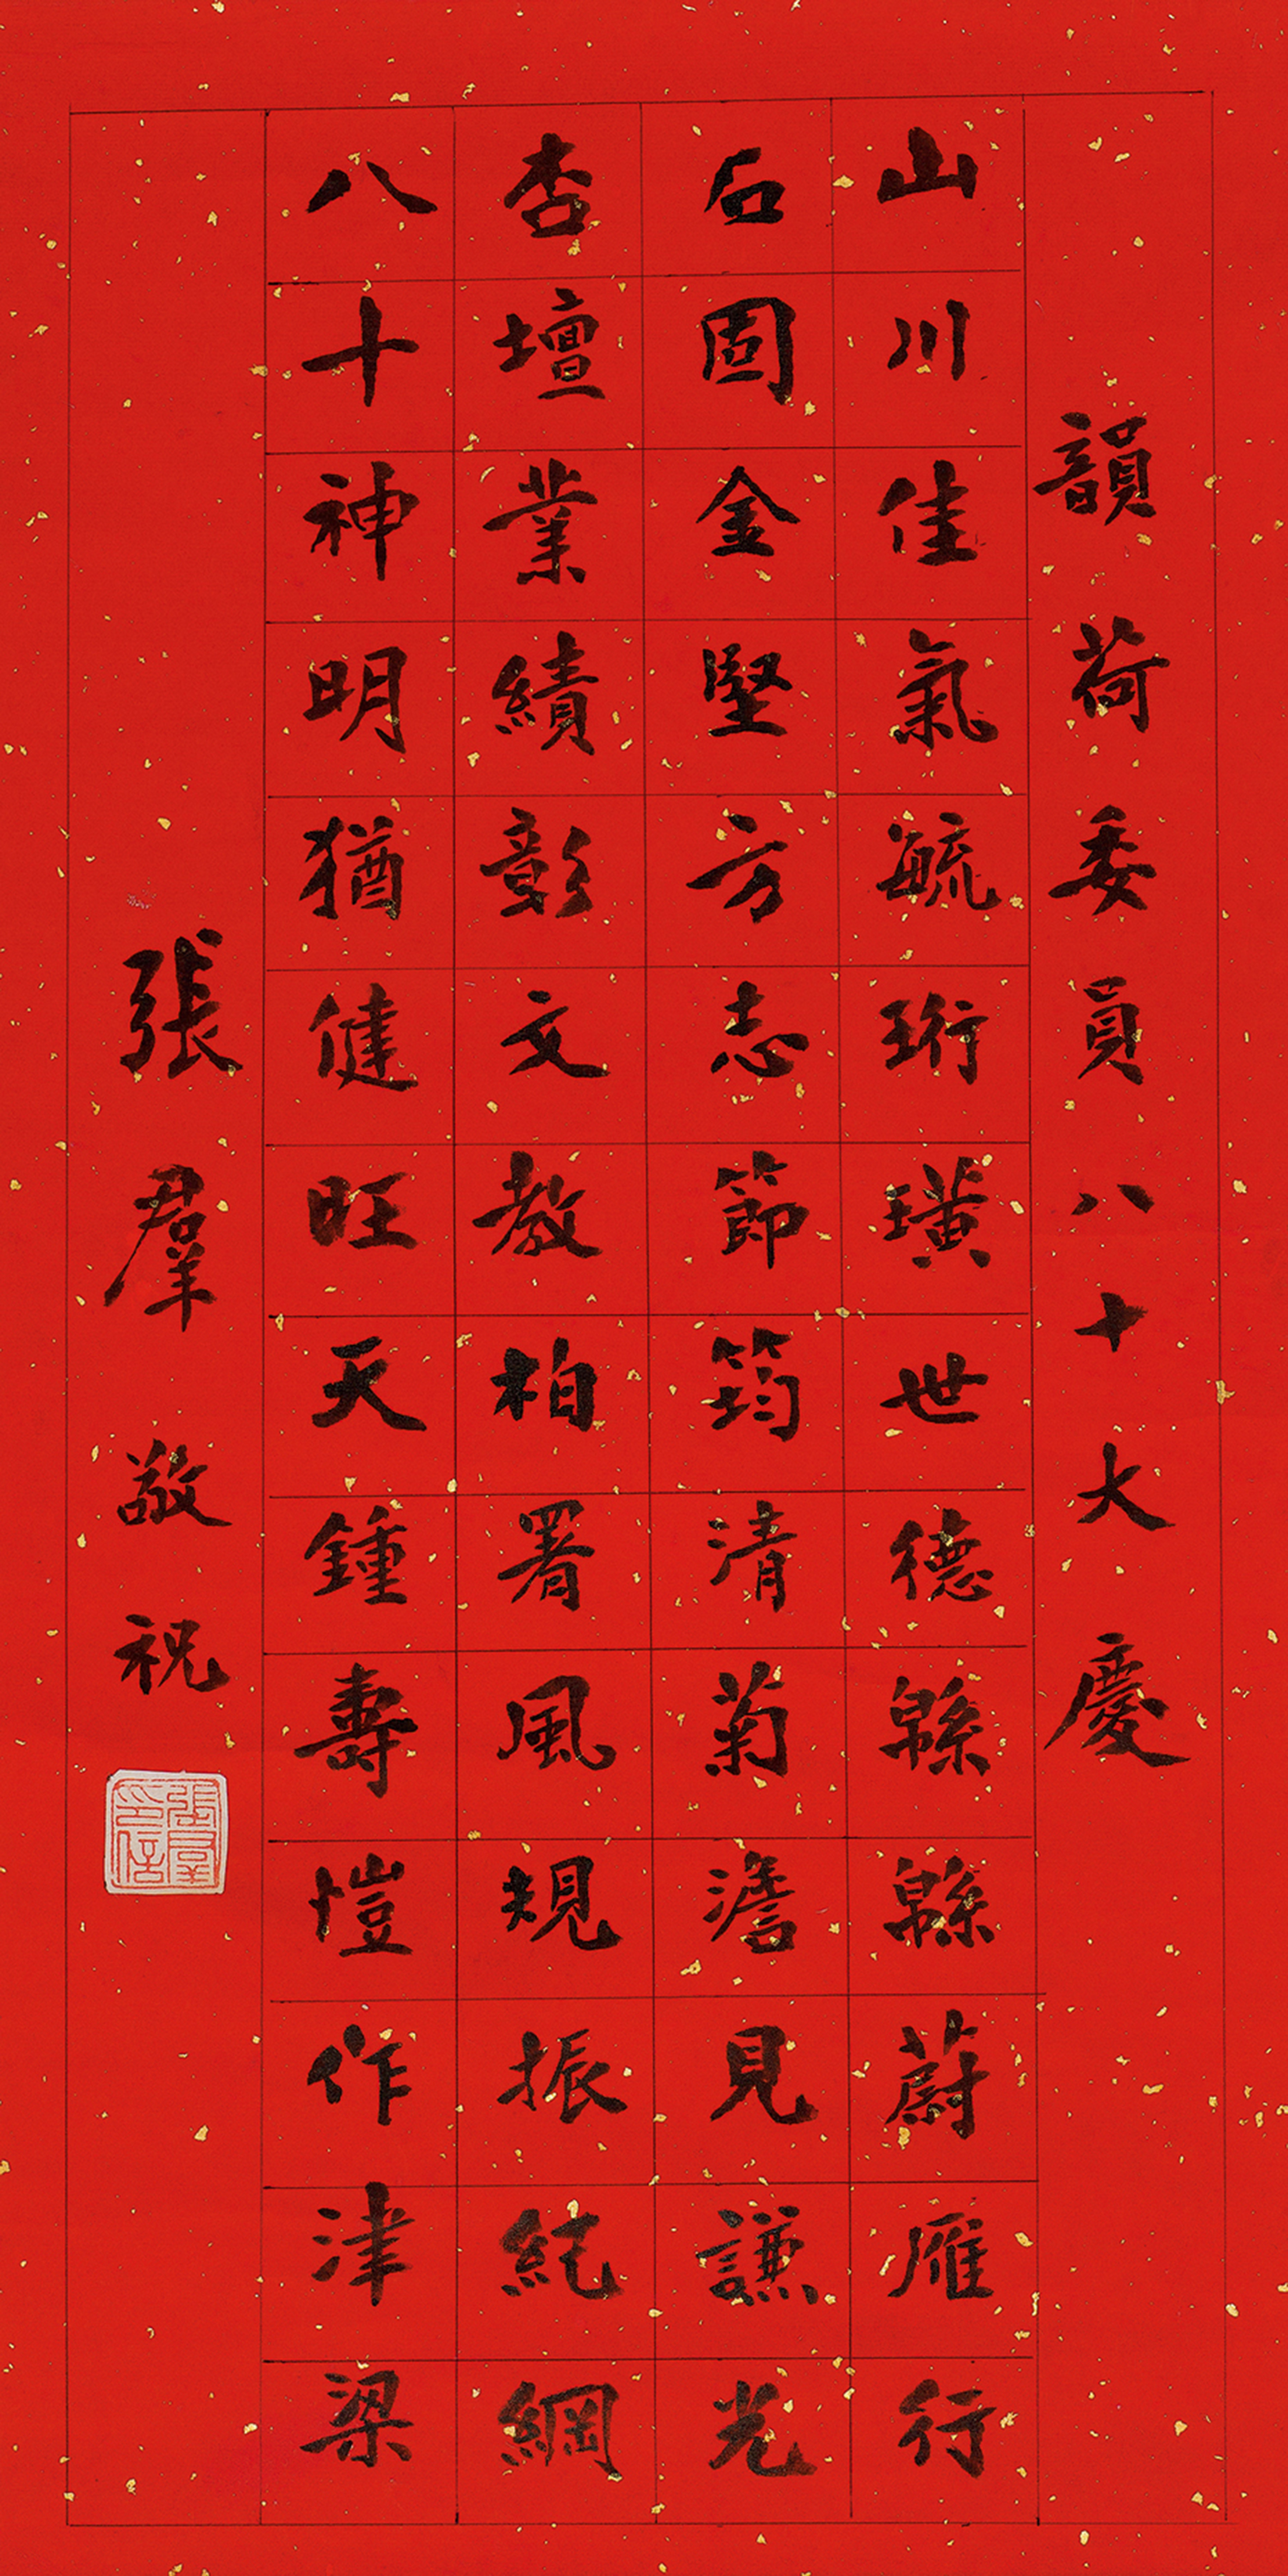 韻荷委員八十大慶
山川佳氣毓珩璜世德緜緜蔚雁行
石固金堅方志節筠清菊澹見謙光
杏壇業績彰文教柏署風規振紀綱
八十神明猶健旺天鍾壽愷作津梁
張羣敬祝
張羣印信